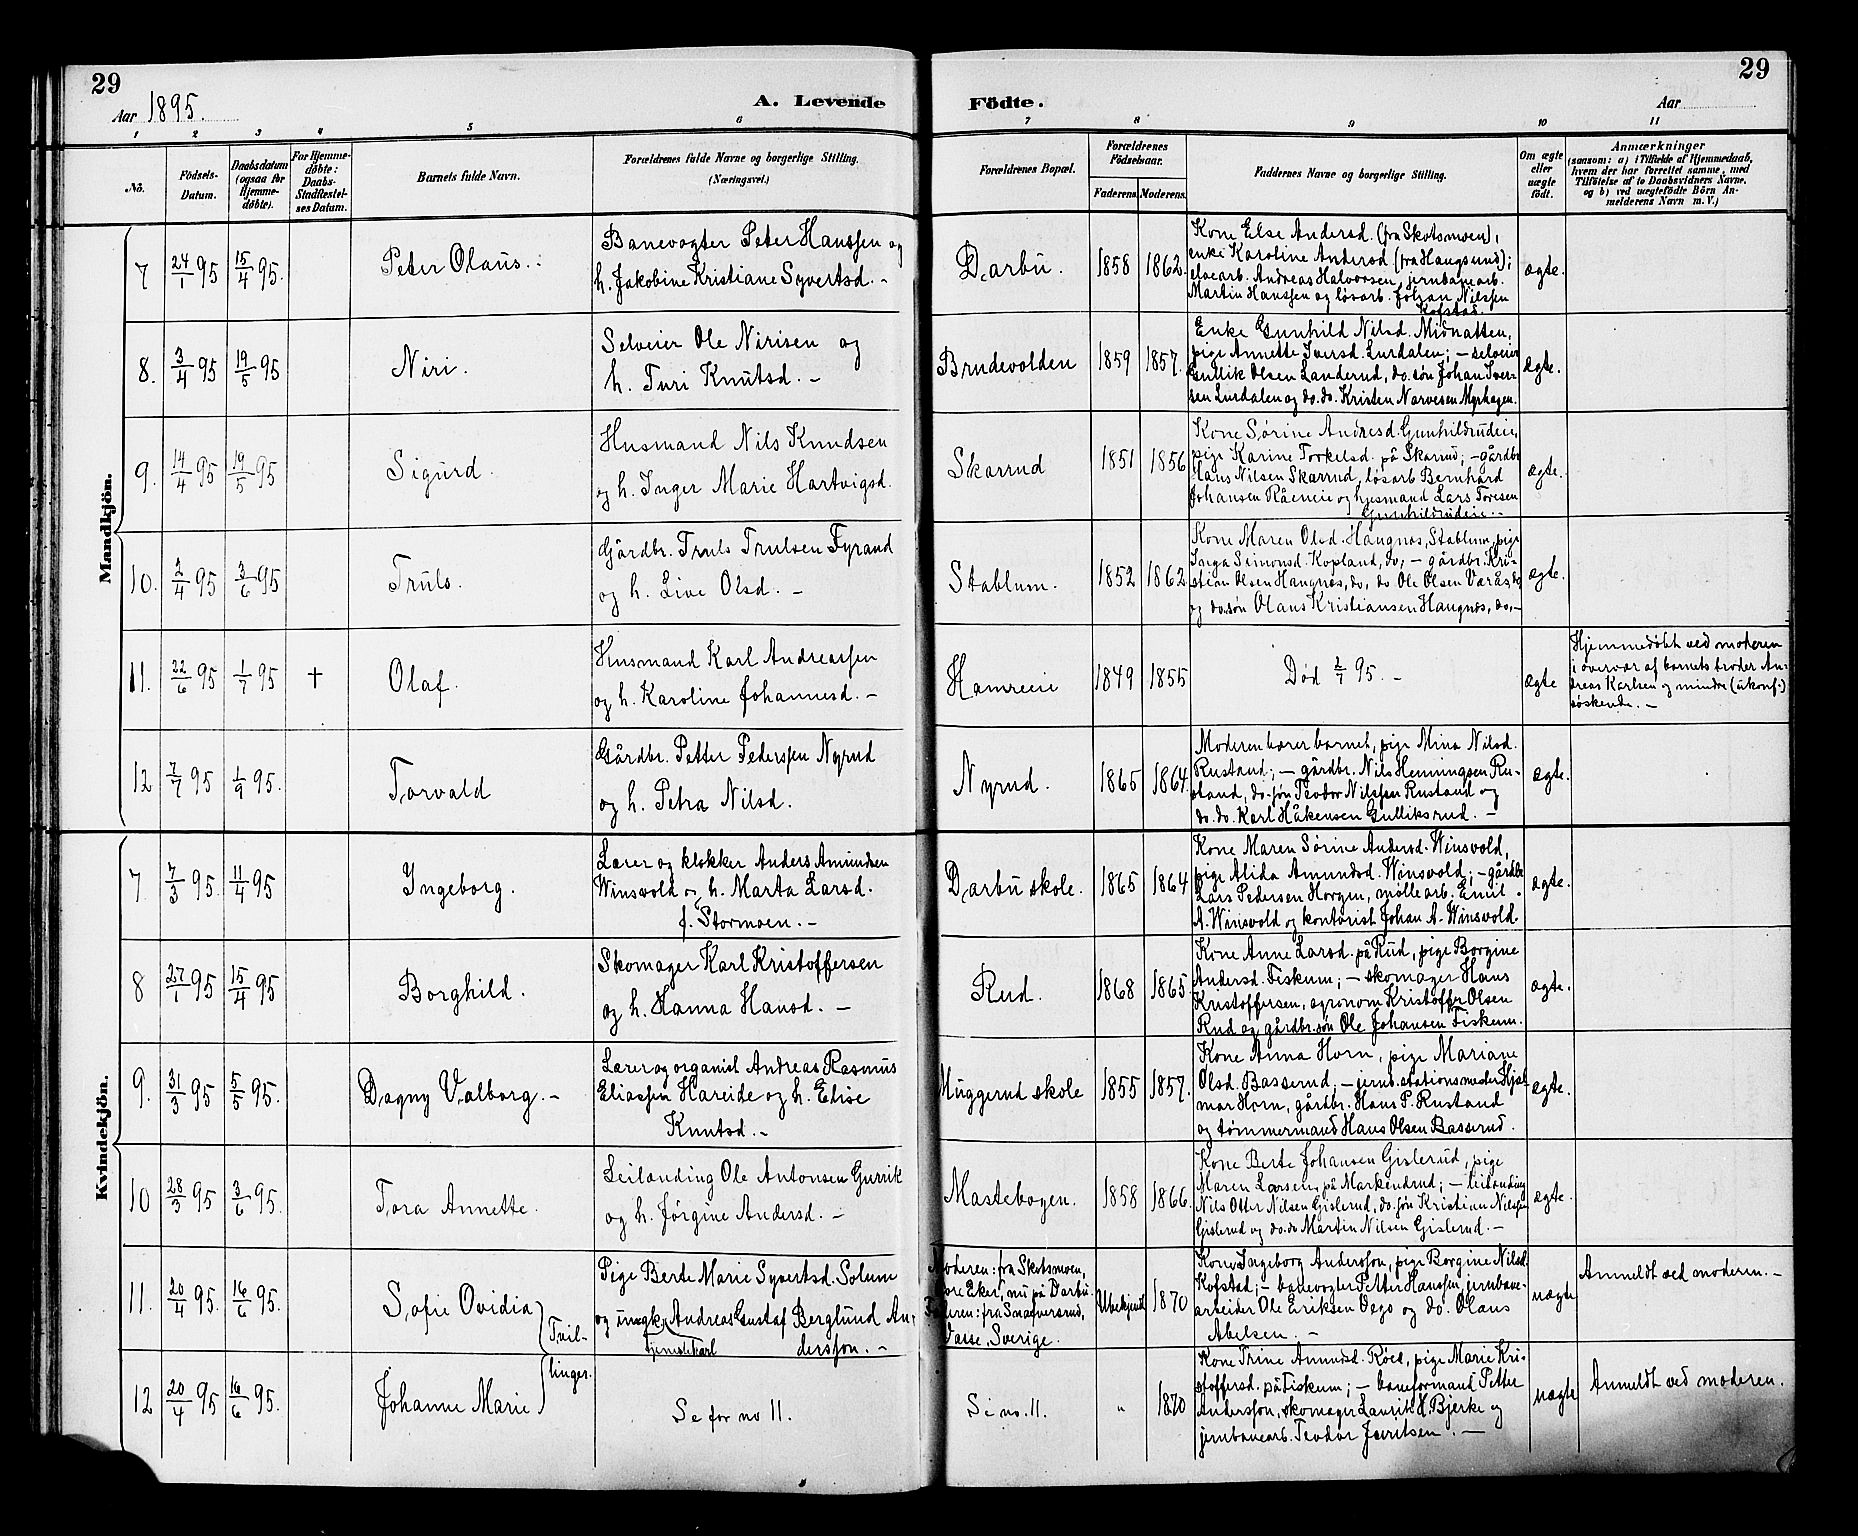 29
29
Aar 1895.
A. Levende
Födte.
Aar
1 2 3 4 5 6 7 8 9 10 11
No.
Födsels-
Datum.
Daabsdatum
(ogsaa for
Hjemme-
døbte).
For Hjemme-
døbte:
Daabs-
Stadfæstel-
ses Datum.
Barnets fulde Navn.
Forældrenes fulde Navne og borgerlige Stilling.
(Næringsvei.)
Forældrenes Bopæl.
Forældrenes
Födselsaar.
Faderens.
Moderens.
Faddernes Navne og borgerlige Stilling.
Om ægte
eller
uægte
födt.
Anmærkninger
(saasom: a) i Tilfælde af Hjemmedaab,
hvem der har forrettet samme, med
Tilföielse af to Daabsvidners Navne,
og b) ved uægtefödte Börn An-
melderens Navn m. V.)
Mandkjön.
7
24/1 95
15/4 95.
Peter Olaus.
Banevogter Peter Hanssen og
h. Jakobine Kristiane Syvertsd. -
Darbu.
1858
1862.
Kone Else Andersd. (fra Skotsmoen),
enke Karoline Andersd (fra Haugsund);
elvearb. Andreas Halvorsen, jernbanearb.
Martin Hanssen og løsarb. Johan Nilssen
Kofstad.
ægte.
8.
3/4 95
19/5 95
Niri.
Selveier Ole Nirisen og
h. Turi Knutsd. -
Brudevolden
1859
1857.
Enke Gunhild Nilsd. Midnatten,
pige Annette Iversd. Lurdalen; - selveier
Gullik Olsen Landerud, do. søn Johan Iver-
sen Lurdalen og do. do. Kristen Narvesen Myrhagen.
ægte.
9.
14/4 95
19/5 95
Sigurd.
Husmand Nils Knudsen
og h. Inger Marie Hartvigsd.
Skarrud
1851
1856
Kone Sørine Andresd. Gunhildrudeie,
pige Karine Torkelsd. på Skarrud; - gårdbr.
Hans Nilsen Skarrud, løsarb Bernhard
Johansen Råeneie og husmand Lars Toresen
Gunhildrudeie. -
ægte.
10.
2/4 95
3/6 95
Truls.
Gårdbr. Truls Trulsen Fyrand
og h. Live Olsd. -
Stablum.
1852
1862
Kone Maren Olsd. Haugnæs, Stablum, pige
Inga Simonsd. Kopland, do, - gårdbr. Kri-
stian Olsen Haugnæs, do, do Ole Olsen Varås do
og do. søn Olaus Kristiansen Haugnæs, do, -
ægte.
11.
22/6 95
1/7 95
+
Olaf.
Husmand Karl Andreassen
og h. Karoline Johannesd. -
Hamreeie
1849
1855
Død 2/7 95. -
ægte
Hjemmedøbt ved moderen
i overvær af barnets broder An-
dreas Karlsen og mindre (ukonf.)
søskende. -
12
7/7 95
1/9 95.
Torvald
Gårdbr. Petter Pedersen Nyrud
og h. Petra Nilsd.
Nyrud.
1865
1864.
Moderen bærer barnet, pige Mina Nilsd.
Rustand; - gårdbr. Nils Henningsen Ru-
stand, do. søn Teodor Nilssen Rustand og
do. do. Karl Håkensen Gulliksrud. -
ægte.
Kvindekjön.
7.
7/3 95.
11/4 95
Ingeborg.
Lærer og klokker Anders Amundsen
Winsvold og h. Marta Larsd.
f. Stormoen. -
Darbu skole.
1865
1864
Kone Maren Sørine Andersd. Winsvold,
pige Alida Amundsd. Winsvold; - gårdbr.
Lars Pedersen Horgen, møllearb. Emil
A. Winsvold og kontorist Johan A. Winsvold.
ægte.
8
27/1 95
15/4 95
Borghild.
Skomager Karl Kristoffersen
og h. Hanna Hansd. -
Rud.
1868
1865
Kone Anne Larsd. på Rud, pige Borgine
Andersd. Fiskum; - skomager Hans
Kristoffersen, agronom Kristoffer Olsen
Rud og gårdbr. søn Ole Johansen Fiskum.
ægte.
9.
31/3 95
5/5 95.
Dagny Valborg. -
Lærer og organist Andreas Rasmus
Eliassen Hareide og h. Elise
Knutsd. -
Muggerud skole
1855
1857.
Kone Anna Horn, pige Mariane
Olsd. Basserud; - jernb. stationsmester Hjal-
mar Horn, gårdbr. Hans P. Rustand
og tømmermand Hans Olsen Basserud.
ægte.
10
28/3 95
3/6 95.
Tora Annette.
Leilænding Ole Antonsen Gurrik
og h. Jørgine Andersd. -
Mastebogen.
1858
1866.
Kone Berte Johansen Gislerud, pige
Maren Larsen på Markendrud; - leilænding
Nils Otter Nilsen Gislerud, do. søn Kristian Nilsen
Gislerud og do. do Martin Nilsen Gislerud. -
ægte.
11.
20/4 95.
16/6 95.
Sofie Ovidia
Tvil-
Pige Berte Marie Syvertsd. Solum
og ungk. Andreas Gustaf Berglund An-
tjenestekarl dersson. -
Moderen: fra Skotsmoen,
øvre Eker, nu på Darbu.
Faderen: fra
Sverige.
Ubekjendt
1870
Kone Ingeborg Andersson, pige Borgine Nilsd.
Kofstad; - banevogter Petter Hanssen, jernbane-
arbeider Ole Eriksen Oego og do. Olaus
Abelsen. -
uægte
Anmeldt ved moderen. -
12
20/4 95
16/6 95.
Johanne Marie
linger.
Se før no 11.
Se no. 11.
"
1870
Kone Trine Amundsd. Røed, pige Marie Kri-
stoffersd. på Fiskum; - baneformand Petter
Andersson, skomager Laurits H. Bjerke og
jernbanearb. Teodor Jaritsen. -
uægte
Anmeldt ved moderen.